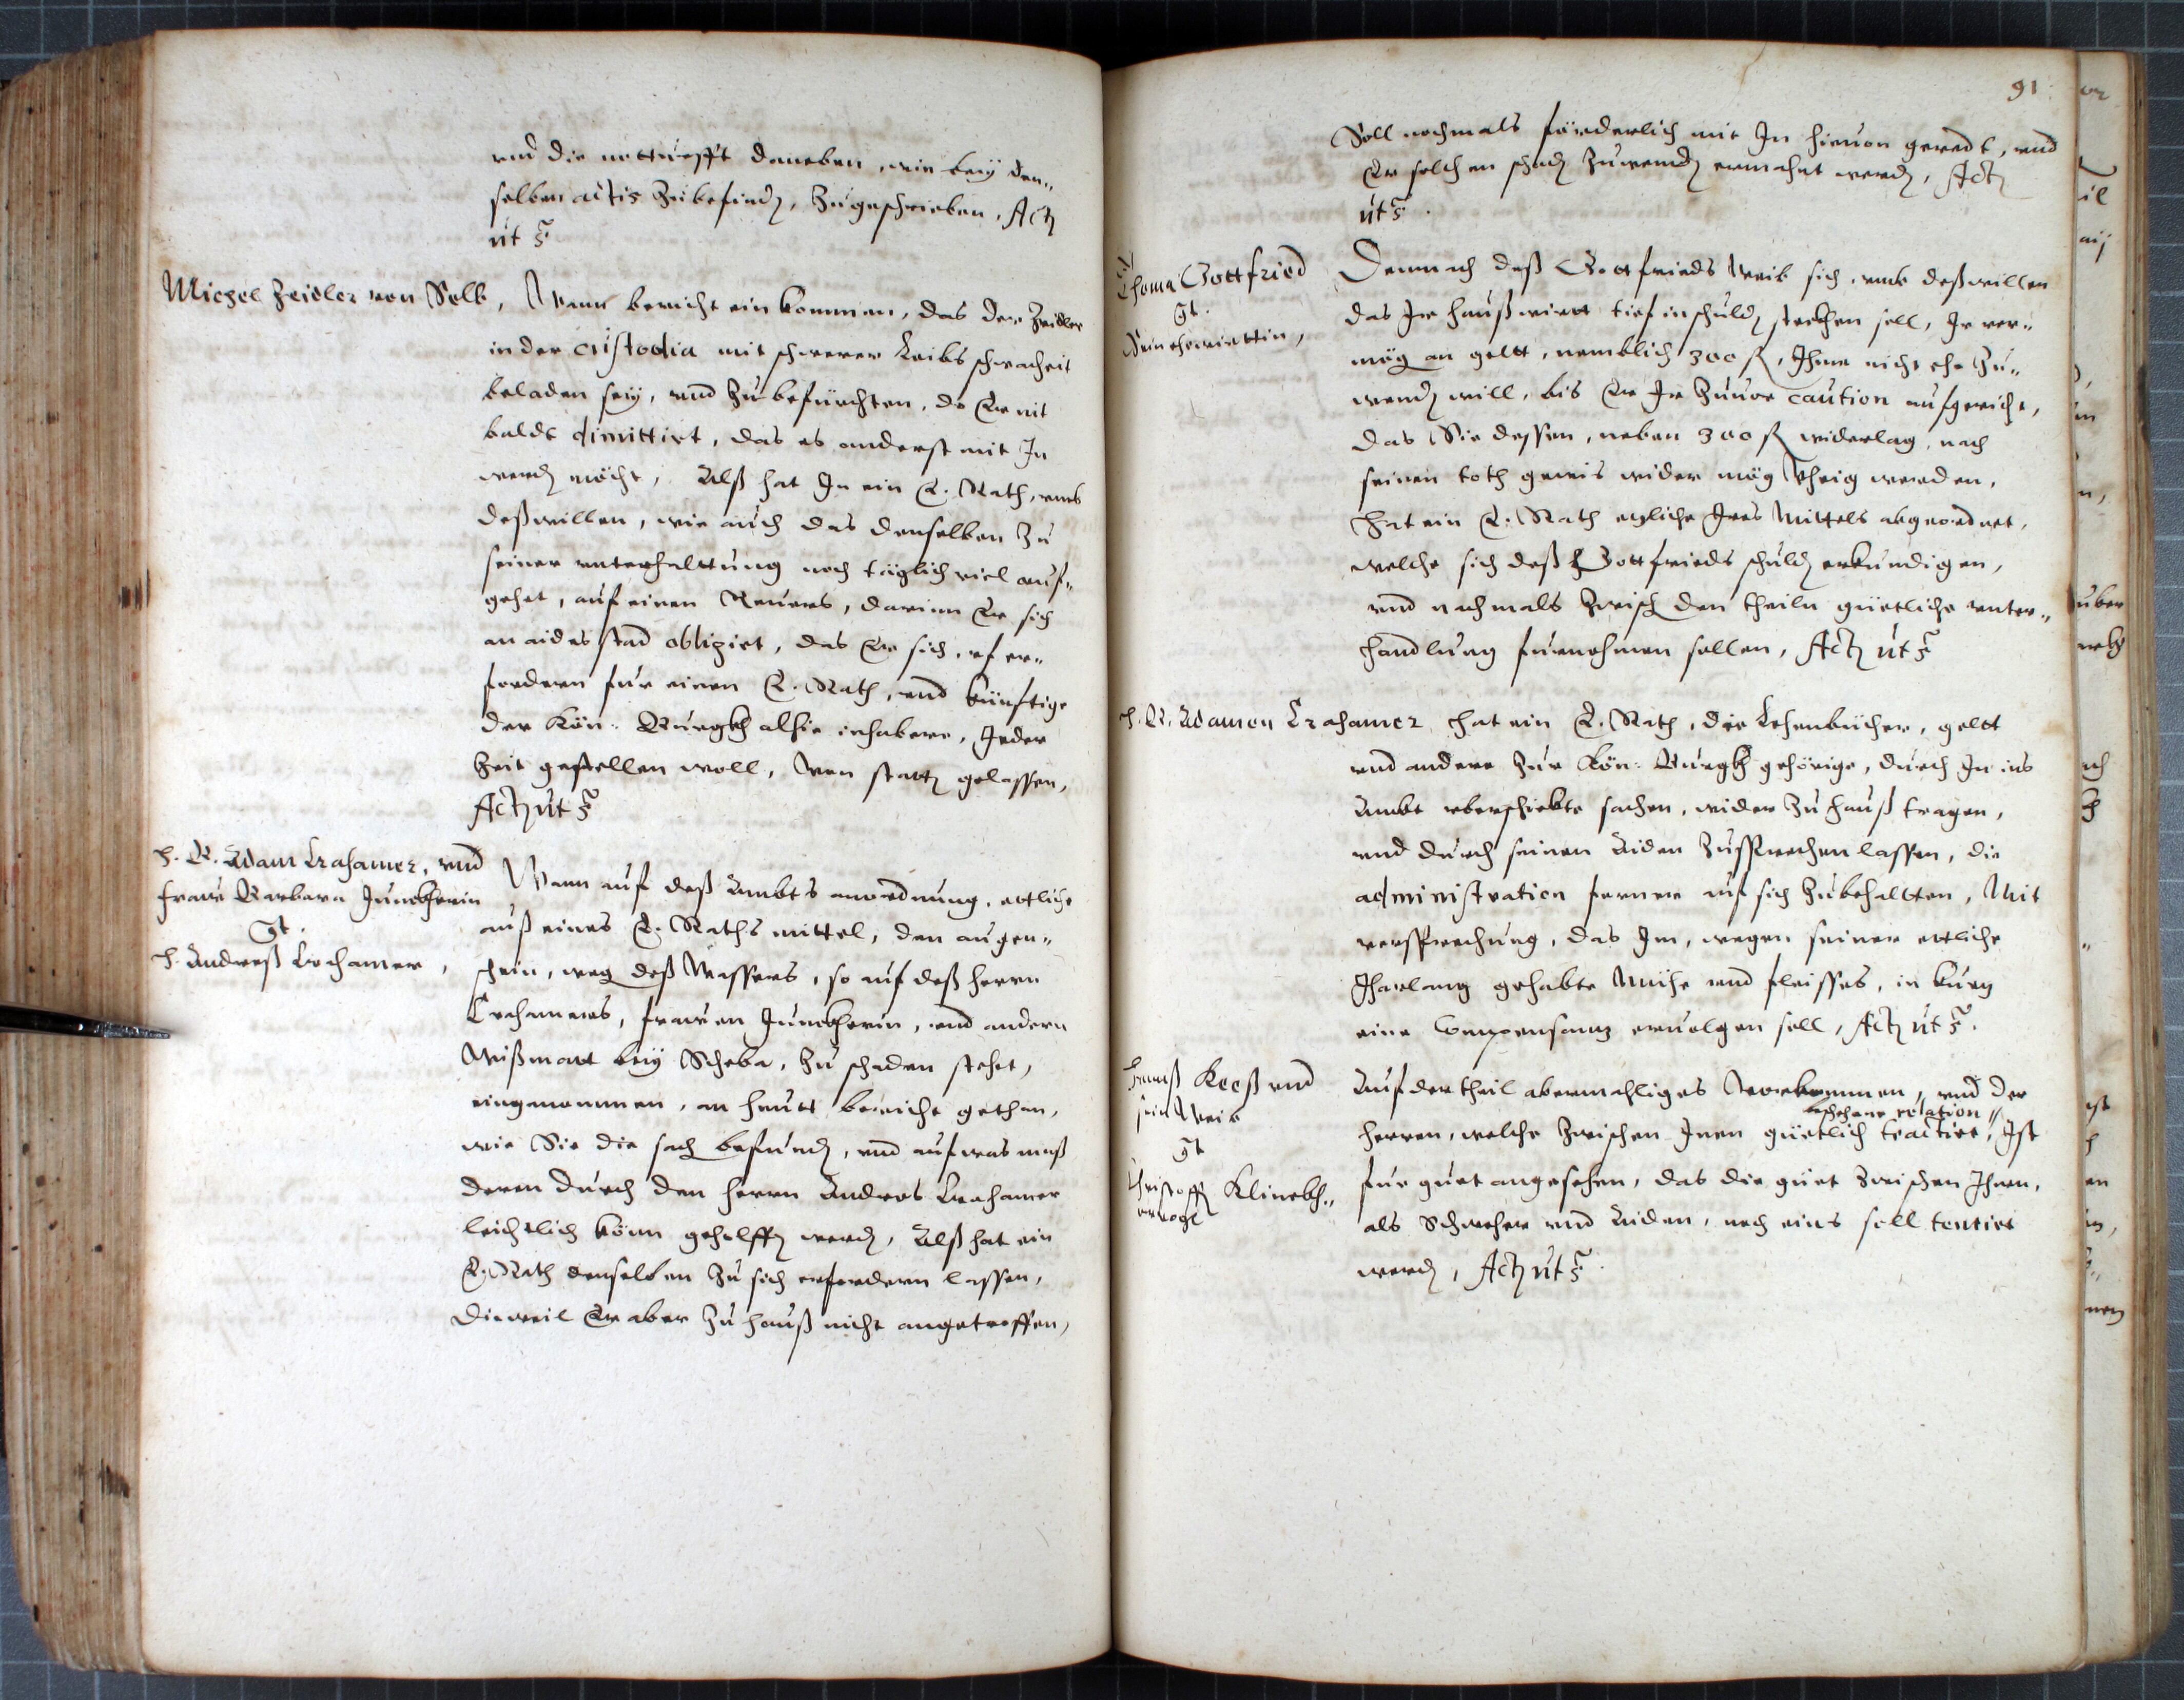 vnd die notturfft daneben, wie beÿ den„
selben actis Zubefinden, Zugeschrieben, Act
ut s.
Michel Zeidler von Selb,
Wann bericht ein kommen, das der Zeidler
in der custodia mit schwerer Leibs schwacheit
beladen seÿ, vnd Zubefürchten, do Er nit
baldt dimittirt, das es anderst mit Jn
werden möcht, Alß hat Jn ein E. Rath, vmb
deßwillen, wie auch das denselben Zu
seiner vnterhalttung noch täglich viel auf„
gehet, auf einen Reuers, darinn Er sich
an aides stad obligirt, das Er sich, vf er„
fordern fur einen E. Rath, vnd künftige
der Kön. Burgkh alhie inhabere, Jeder
Zeit gestellen woll, von statten gelassen,
Act ut s.
H. B. Adam Crahamer, vnd
fraw Barbara Junckherin
Ct.
H. Andreß Crahamer,
Wann auf deß Ambts anordnung, ettliche
auß eines E. Raths mittel, den augen„
schein, weg deß Wassers, so auf deß herrn
Crahamers, frawen Junckherin, vnd andern
Wißmatt beÿ Scheba, Zu schaden stehet,
eingenommen, an heutt bericht gethan,
wie Sie die sach befunden, vnd auf was maß
deren durch den herrn Andres Crahamer
leichtlich könn geholffen werden, Alß hat ein
E. Rath denselben Zu sich erfordern lassen,
dieweil Er aber Zu hauß nicht angetroffen,
91.
Soll nochmals fürderlich mit Jn hieuon geredt, vnd
Er solchen schaden Zuwenden ermahnt werden, Act
ut s.
Thoma Gottfried
Ct.
Sein ehewirttin,
Demnach deß Gottfrieds Weib sich, vmb deßwillen
das Jr haußwirtt tief in schulden stecken soll, Jr ver„
mög an geltt, nemblich 300 fl, Jhme nicht ehe Zu„
wenden will, bis Er Jr Zuuor caution aufgericht,
das Sie dessen, neben 300 fl widerlag, nach
seinen todt gewis wider mög vhig werden,
hat ein E. Rath etzliche Jres Mittels abgeordnet,
welche sich deß Gottfrieds schulden erkundigen,
vnd nachmals Zwischen den theiln güetliche vnter„
handlung furnehmen sollen, Act ut s.
H. B. Adamen Crahamer hat ein E. Rath, die Lehenbücher, geltt
vnd andere Zur Kön. Burgkh gehörige, durch Jn ins
Ambt vberschickte sachen, wider Zu hauß tragen,
vnd durch seinen Aiden Zusprechen lassen, die
administration ferner auf sich Zubehaltten, Mit
versprechung, das Jm, wegen seiner ettliche
Jharlang gehabte Mühe vnd fleisses, in kurtz
eine Compensanz eruolgen soll, Act ut s.
Hanß Keeß vnd
sein Weib
Ct
Christoff Klinekh„
Auf der theil abermahliges Vorkommen, vnd der
beschehene relation
herren, welche Zwischen Jnen güetlich tractirt, Jst
fur guet angesehen, das die güet Zwischen Jhnen,
als Schweher vnd Aiden, noch eins soll tentirt
werden, Act ut s.